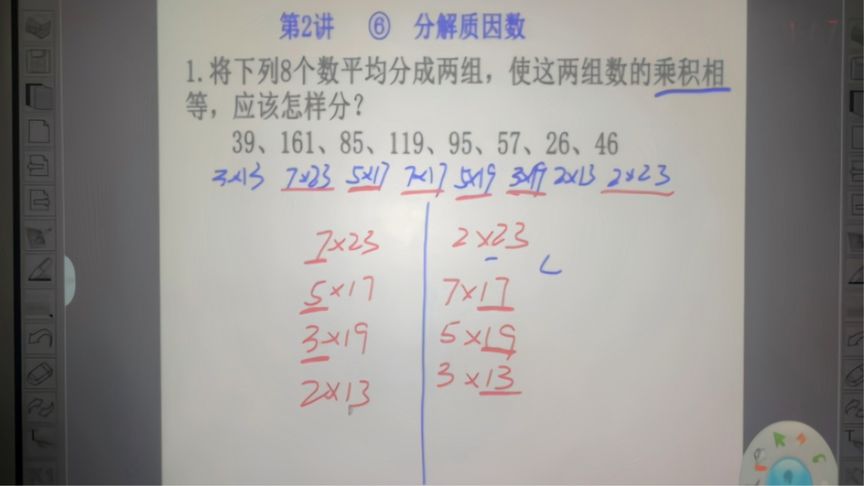 第2讲 ⑥ 分解质因数
1.将下列8个数平均分成两组，使这两组数的乘积相
等，应该怎样分？
39、161、85、119、95、57、26、46
3×13 7×23 5×17 7×17 5×19 3×19 2×13 2×23
7×23 2×23
5×17 7×17
3×19 5×19
2×13 3×13